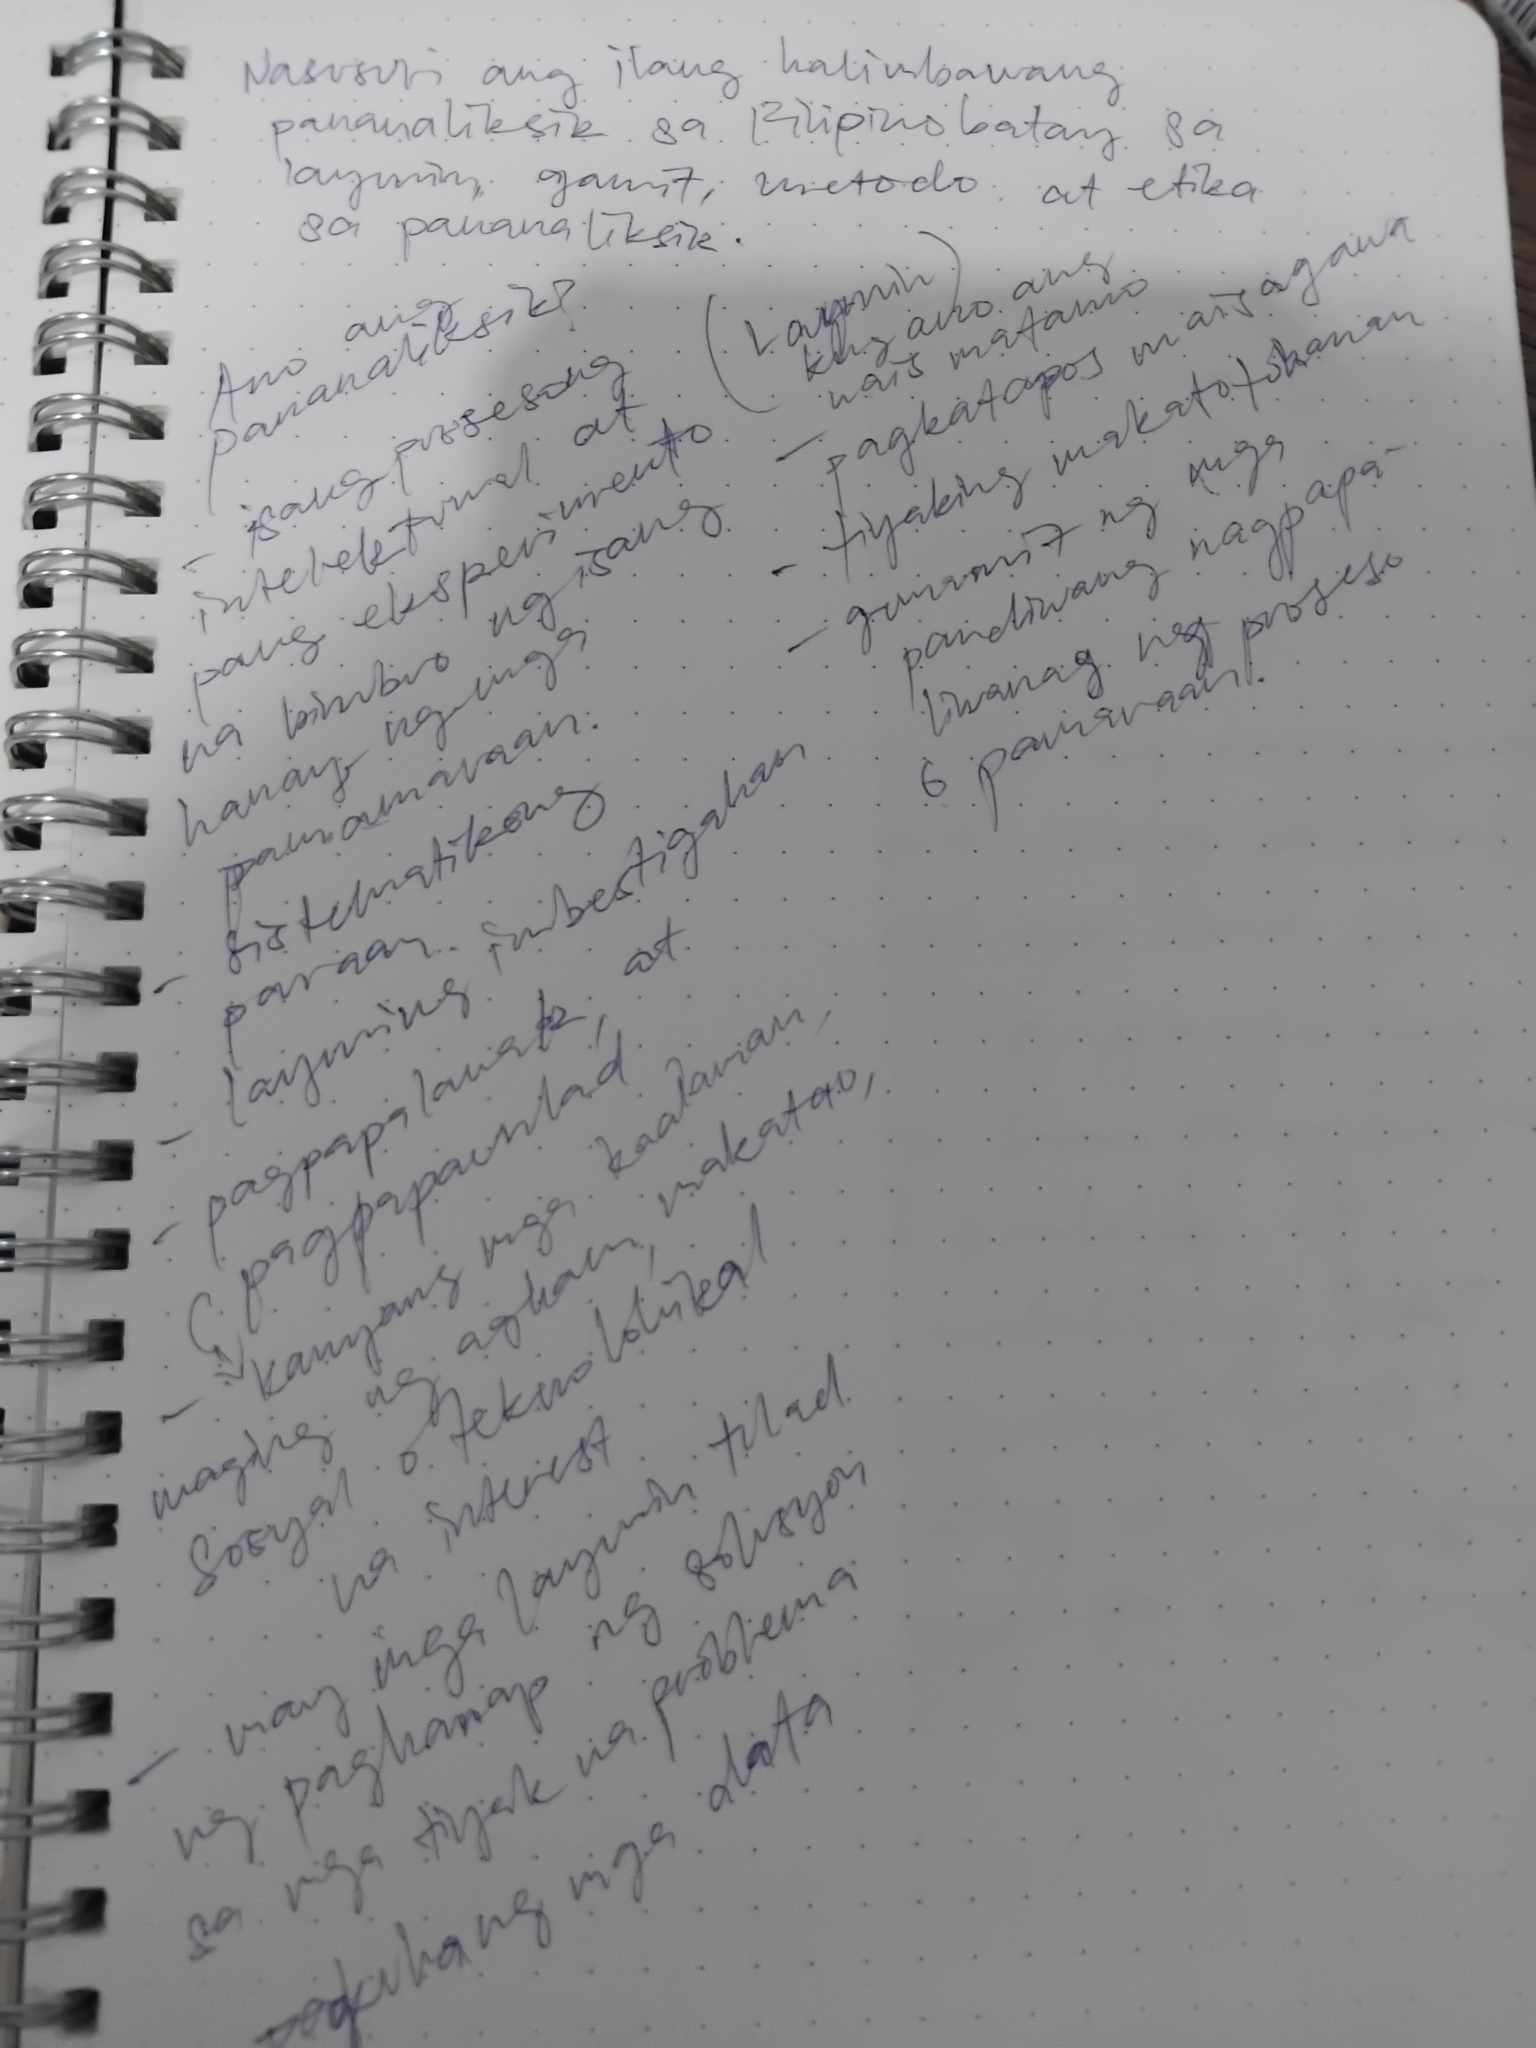 Nasusuri ang ilang halimbawang
pananaliksik sa Filipino batay sa
layunin, gamit, metodo at etika
sa pananaliksik.
Ano ang
pananaliksik?
- isang prosesong
intelektuwal at
pang eksperimento
na binbuo ng isang
hanay ng mga
pamamaraan.
- sistematikong
paraan
- layuning imbestigahan
- pagpapalawak, at
pagpapaunlad
- kanyang mga kaalaman,
maging ng agham, makatao,
sosyal o teknolohikal
na interest
- may mga layunin tulad
ng paghanap ng solusyon
sa mga tiyak na problema
mga data
(Layunin)
kng ano ang
nais matamo
- pagkatapos maisagawa
- tiyaking makatotohanan
- gumamit ng mga
pandiwang nagpapa-
liwanag ng proseso
o pamaraan.